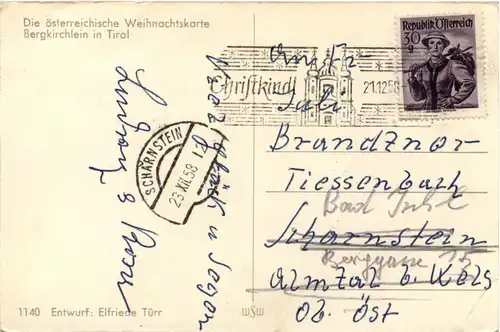 Die österreichische Weihnachtskarte
Bergkirchlein in Tirol
Republik Österreich
30
g
Christkindl
21.12.58
SCHARNSTEIN
23.XII.58
Brandzner
Tiessenbach
Bad Ischl
Scharnstein
Berggasse
Almtal b. Wels
Ob. Öst
Viel Glück u Segen
1140 Entwurf: Elfriede Türr
WSW